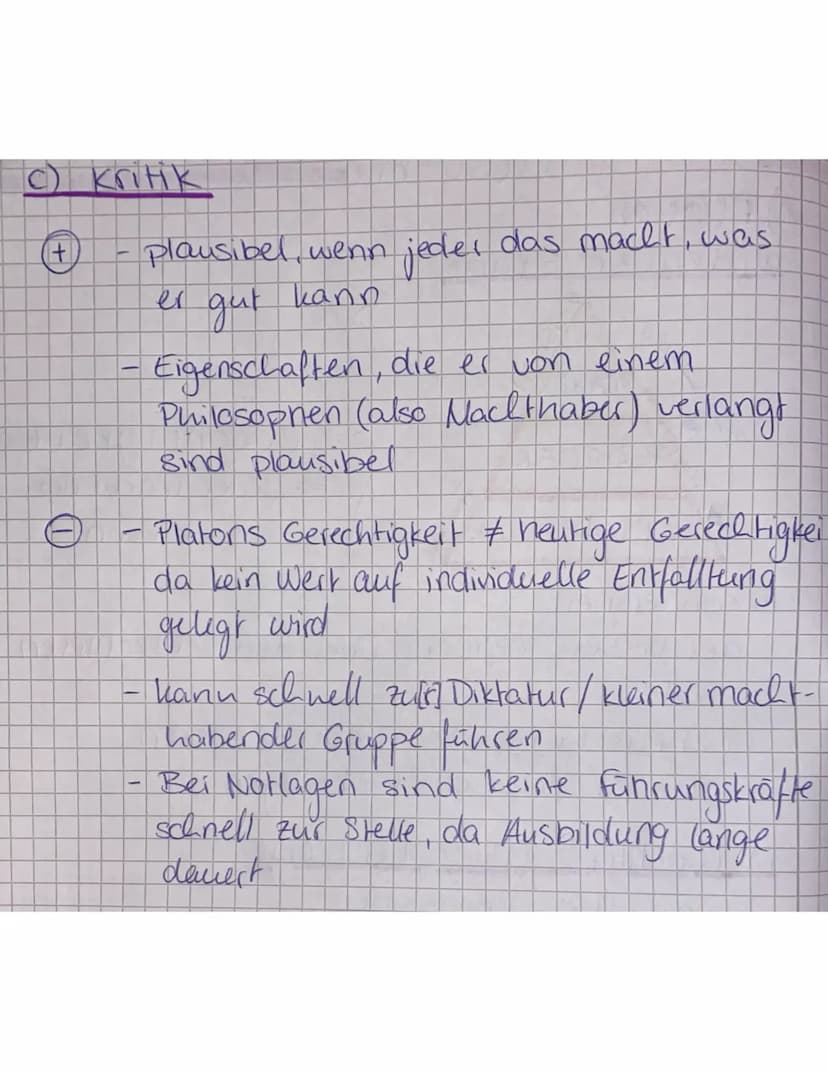 c) Kritik
⊕ - plausibel, wenn jeder das macht, was
er gut kann
- Eigenschaften, die er von einem
Philosophen (also Machthaber) verlangt
sind plausibel
⊖ - Platons Gerechtigkeit ≠ heutige Gerechtigkei
da kein Wert auf individuelle Entfalltung
gelegt wird
- kann schnell zu[r] Diktatur / kleiner macht-
habender Gruppe führen
- Bei Notlagen sind keine Führungskräfte
schnell zur Stelle, da Ausbildung lange
dauert